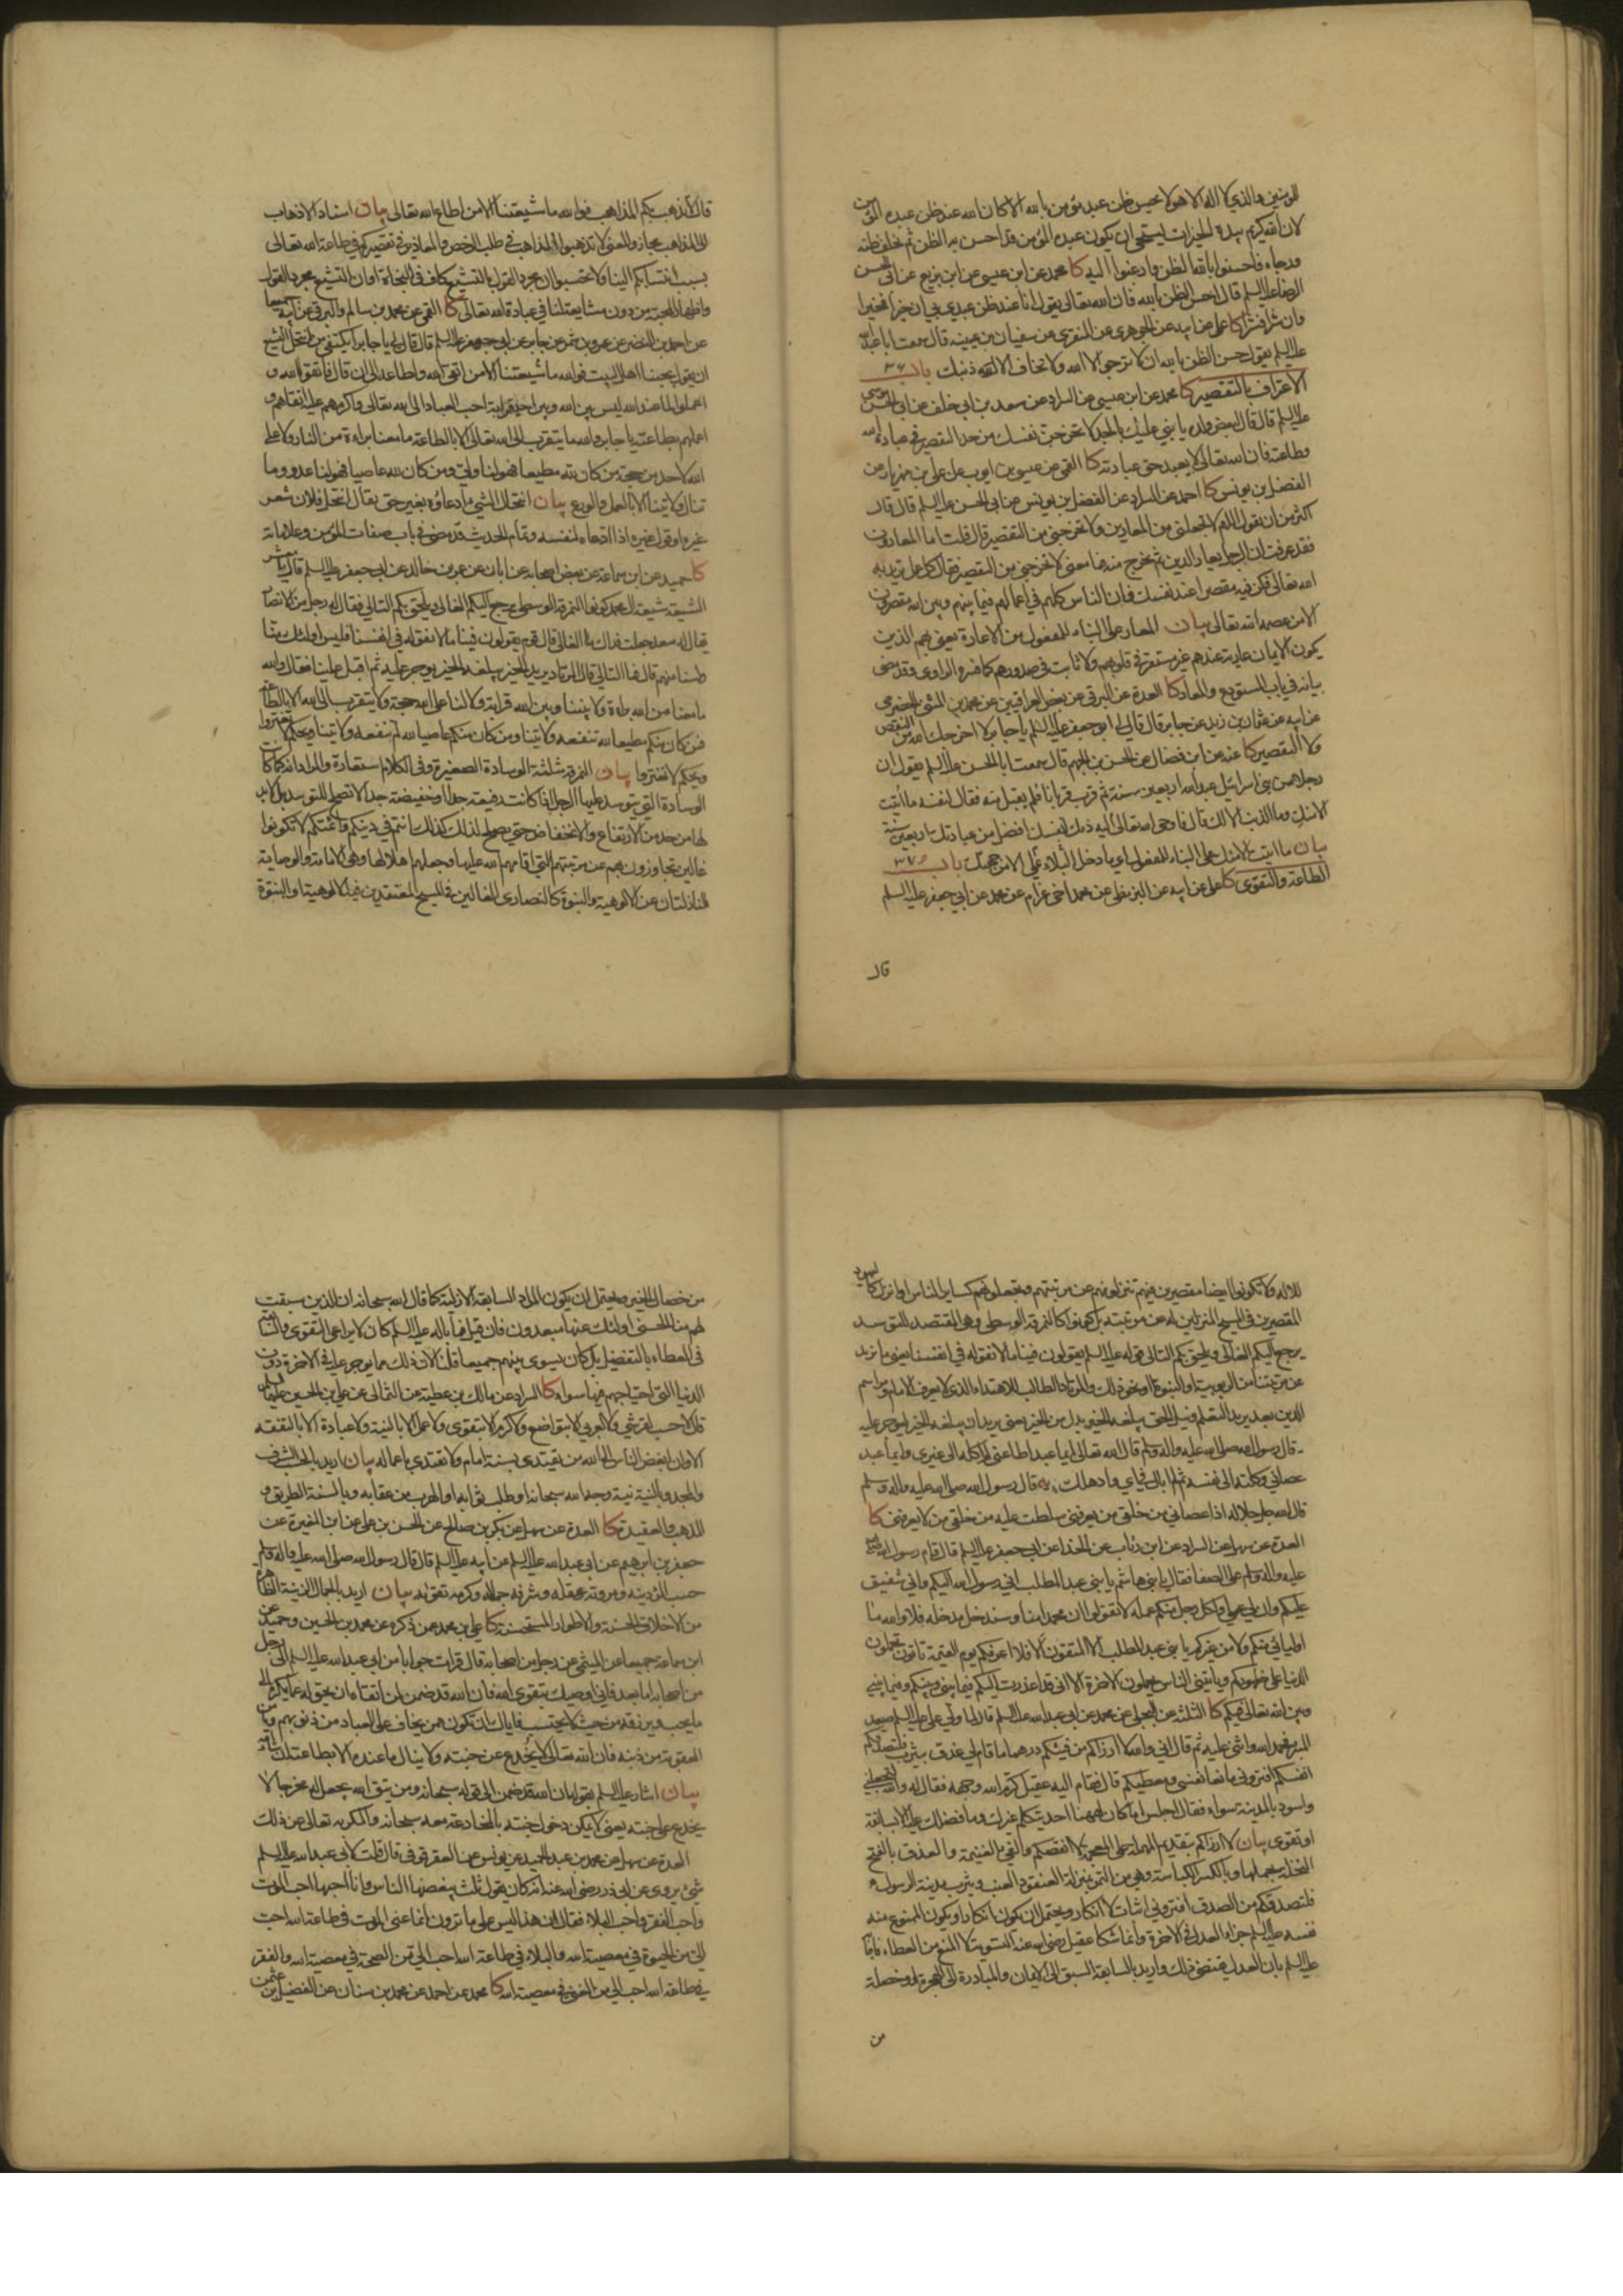 للمؤمنين والذي لا اله الا هو لا يحسن ظن عبد مؤمن بالله الا كان الله عند ظن عبده المؤمن
لان الله كريم بيده الخيرات يستحيي ان يكون عبده المؤمن قد احسن به الظن ثم يخلف ظنه
ورجاءه فاحسنوا بالله الظن وارغبوا اليه كا محمد عن ابن عيسى عن ابن بزيع عن ابي الحسن
الرضا عليه السلم قال احسن الظن بالله فان الله تعالى يقول انا عند ظن عبدي بي ان خيرا فخيرا
وان شرا فشرا كا علي عن ابيه عن الجوهري عن المنقري عن سفيان بن عيينه قال سمعت ابا عبد الله
عليه السلم يقول حسن الظن بالله ان لا ترجو الا الله ولا تخاف الا ذنبك باب ٣٦
الاعتراف بالتقصير كا محمد عن ابن عيسى عن السراد عن سعد بن ابي خلف عن ابي الحسن موسى
عليه السلم قال قال لبعض ولده يا بني عليك بالجد لا تخرجن نفسك من حد التقصير في عبادة الله
وطاعته فان الله تعالى لا يعبد حق عبادته كا القمي عن عيسى بن ايوب عن علي بن مهزيار عن
الفضل بن يونس كا احمد عن السراد عن الفضل بن يونس عن ابي الحسن عليه السلم قال قال
اكثر من ان تقول اللهم لا تجعلني من المعارين ولا تخرجني من التقصير قال قلت اما المعارون
فقد عرفت ان الرجل يعار الدين ثم يخرج منه فما معنى لا تخرجني من التقصير فقال كل عمل تريد به
الله تعالى فكن فيه مقصرا عند نفسك فان الناس كلهم في اعمالهم فيما بينهم وبين الله مقصرون
الا من عصمه الله تعالى بيان المعار على البناء للمفعول من الاعارة يعني بهم الذين
يكون الايمان عارية عندهم غير مستقر في قلوبهم ولا ثابت في صدورهم كما فسره الراوي وقد مضى
بيانه في باب المستودع والمعار كا العدة عن البرقي عن بعض العراقيين عن محمد بن المثنى الحضرمي
عن ابيه عن عثمان بن زيد عن جابر قال قال لي ابو جعفر عليه السلم يا جابر لا اخرجك الله من النقص
ولا التقصير كا عنه عن ابن فضال عن الحسن بن الجهم قال سمعت ابا الحسن عليه السلم يقول ان
رجلا من بني اسرائيل عبد الله اربعين سنة ثم قرب قربانا فلم يقبل منه فقال لنفسه ما اتيت
الا منك وما الذنب الا لك قال فاوحى الله تعالى اليه ذمك لنفسك افضل من عبادتك اربعين سنة
بيان ما اتيت الا منك على البناء للمفعول اي ما دخل البلاء علي الا من جهتك باب ٣٧
الطاعة والتقوى كا علي عن ابيه عن البزنطي عن محمد اخي عرام عن محمد عن ابي جعفر عليه السلم
قال
قال لا تذهب بكم المذاهب فوالله ما شيعتنا الا من اطاع الله تعالى بيان اسناد الاذهاب
الى المذاهب مجاز والمعنى لا تذهبوا المذاهب في طلب الرخص والمعاذير في تقصيركم في طاعة الله تعالى
بسبب انتسابكم الينا ولا تحسبوا ان مجرد القول بالتشيع كاف في النجاة او ان التشيع مجرد القول
واظهار المحبة من دون مشايعتنا في عبادة الله تعالى كا القمي عن محمد بن سالم والبرقي عن ابيه جميعا
عن احمد بن النضر عن عمرو بن شمر عن جابر عن ابي جعفر عليه السلم قال قال لي يا جابر ايكتفي من انتحل التشيع
ان يقول بحبنا اهل البيت فوالله ما شيعتنا الا من اتقى الله واطاعه الى ان قال فاتقوا الله و
اعملوا لما عند الله ليس بين الله وبين احد قرابة احب العباد الى الله تعالى واكرمهم عليه اتقاهم و
اعملهم بطاعته يا جابر والله ما يتقرب الى الله تعالى الا بالطاعة ما معنا براءة من النار ولا على
الله لاحد من حجة من كان لله مطيعا فهو لنا ولي ومن كان لله عاصيا فهو لنا عدو وما
تنال ولايتنا الا بالعمل والورع بيان انتحال الشيء ادعاؤه بغير حق يقال انتحل فلان شعر
غيره او قول غيره اذا ادعاه لنفسه وتمام الحديث قد مضى في باب صفات المؤمن وعلاماته
كا حميد عن ابن سماعة عن بعض اصحابه عن ابان عن عمرو بن خالد عن ابي جعفر عليه السلم قال يا معشر
الشيعة شيعة آل محمد كونوا النمرقة الوسطى يرجع اليكم الغالي ويلحق بكم التالي فقال له رجل من الانصار
يقال له سعد جعلت فداك ما الغالي قال قوم يقولون فينا ما لا نقوله في انفسنا فليس اولئك منا
ولسنا منهم قال فما التالي قال المرتاد يريد الخير يبلغه الخير يوجر عليه ثم اقبل علينا فقال والله
ما معنا من الله براءة ولا بيننا وبين الله قرابة ولا لنا على الله حجة ولا يتقرب الى الله الا بالطاعة
فمن كان منكم مطيعا لله تنفعه ولايتنا ومن كان منكم عاصيا لله لم تنفعه ولايتنا ويحكم لا تغتروا
ويحكم لا تغتروا بيان النمرقة مثلثة الوسادة الصغيرة وفي الكلام استعارة والمراد انه كما كانت
الوسادة التي يتوسد عليها الرجل اذا كانت رفيعة جدا او خفيضة جدا لا تصلح للتوسد بل لا بد
لها من حد من الارتفاع والانخفاض حتى يصلح لذلك كذلك انتم في دينكم وائمتكم لا تكونوا
غالين تجاوزون بهم عن مرتبتهم التي اقامهم الله عليها وجعلهم اهلا لها وهي الامامة والوصاية
النازلتان عن الالوهية والنبوة كالنصارى الغالين في المسيح المعتقدين فيه الالوهية او البنوة
للاله ولا تكونوا ايضا مقصرين فيهم تنزلونهم عن مرتبتهم وتجعلونهم كساير الناس او انزل كاليهود
المقصرين في المسيح المنزلين له عن مرتبته بل كونوا كالنمرقة الوسطى وهي المقتصد للتوسد
يرجع اليكم الغالي ويلحق بكم التالي قوله عليه السلم يقولون فينا ما لا نقوله في انفسنا يعني ما نريد
عن مرتبتنا من الربوبية او النبوة او نحو ذلك والمرتاد الطالب للاهتداء الذي لا يعرف الامام ومراسم
الدين بعد يريد التعلم ونيل الحق يبلغه الخير بدل من الخير يعني يريد ان يبلغه الخير ليوجر عليه
قال رسول الله صلى الله عليه واله وسلم قال الله تعالى ايما عبد اطاعني لم اكله الى غيري وايما عبد
عصاني وكلته الى نفسه ثم لم ابال في اي واد هلك يه قال رسول الله صلى الله عليه واله وسلم
قال الله جل جلاله اذا عصاني من خلقي من يعرفني سلطت عليه من خلقي من لا يعرفني كا
العدة عن سهل عن السراد عن ابن رئاب عن الحذاء عن ابي جعفر عليه السلم قال قام رسول الله صلى الله
عليه واله وسلم على الصفا فقال يا بني هاشم يا بني عبد المطلب اني رسول الله اليكم واني شفيق
عليكم وان لي عملي ولكل رجل منكم عمله لا تقولوا ان محمدا منا وسندخل مدخله فلا والله ما
اوليائي منكم ولا من غيركم يا بني عبد المطلب الا المتقون الا فلا اعرفكم يوم القيمة تاتون تحملون
الدنيا على ظهوركم وياتيني الناس يحملون الاخرة الا اني قد اعذرت اليكم فيما بيني وبينكم وفيما بيني
وبين الله تعالى فيكم كا الثلثة عن البجلي عن محمد عن ابي عبد الله عليه السلم قال لما ولي علي عليه السلم صعد
المنبر فحمد الله واثنى عليه ثم قال اني والله لا ارزاكم من فيئكم درهما ما قام لي عذق بيثرب فلتصدقكم
انفسكم افتروني مانعا نفسي ومعطيكم قال فقام اليه عقيل كرم الله وجهه فقال له والله لتجعلني
واسود بالمدينة سواء فقال اجلس اما كان ههنا احد يتكلم غيرك وما فضلك عليه الا بسابقة
او تقوى بيان لا ارزاكم بتقديم المهملة على المعجمة لا انقصكم والفيء الغنيمة والعذق بالفتح
النخلة بحملها وبالكسر الكباسة وهي من التمر بمنزلة العنقود من العنب ويثرب مدينة الرسول
فلتصدقكم من الصدق افتروني اثبات لا انكار ويحتمل ان يكون انكارا ويكون الممنوع منه
نفسه عليه السلم جزاء العدل في الاخرة وانما شكا عقيل رضي الله عنه التسوية لا المنع من العطاء فاجابه
عليه السلم بان العدل يقتضي ذلك واريد بالسابقة السبق الى الايمان والمبادرة الى الهجرة او خصلة
من
من خصال الخير ويحتمل ان يكون المراد السابقة الازلية كما قال الله سبحانه ان الذين سبقت
لهم منا الحسنى اولئك عنها مبعدون فان قيل فما باله عليه السلم كان لا يراعي التقوى والسابقة
في العطاء بالتفضيل بل كان يسوي بينهم جميعا قلنا لان ذلك مما يوجر عليه في الاخرة دون
الدنيا التي احتياجهم فيها سواء كا السراد عن مالك بن عطية عن الثمالي عن علي بن الحسين عليهما السلم
قال لا حسب لقرشي ولا لعربي الا بتواضع ولا كرم الا بتقوى ولا عمل الا بالنية ولا عبادة الا بالتفقه
الا وان ابغض الناس الى الله من يقتدي بسنة امام ولا يقتدي باعماله بيان اريد بالحسب الشرف
والمجد وبالنية نية وجه الله سبحانه او طلب ثوابه او الهرب من عقابه وبالسنة الطريق و
المذهب والعقيدة كا العدة عن سهل عن بكر بن صالح عن الحسن بن علي عن ابن المغيرة عن
جعفر بن ابرهيم عن ابي عبد الله عليه السلم عن ابيه عليه السلم قال قال رسول الله صلى الله عليه واله وسلم
حسب المرء دينه ومروته وعقله وشرفه جماله وكرمه تقواه بيان اريد بالجمال الزينة الظاهرة
من الاخلاق الحسنة والاطوار المستحسنة كا علي بن محمد عمن ذكره عن محمد بن الحسين وحميد عن
ابن سماعة جميعا عن الميثمي عن رجل من اصحابه قال قرات جوابا من ابي عبد الله عليه السلم الى رجل
من اصحابه اما بعد فاني اوصيك بتقوى الله فان الله قد ضمن لمن اتقاه ان يحوله عما يكره الى
ما يحب ويرزقه من حيث لا يحتسب فاياك ان تكون ممن يخاف على العباد من ذنوبهم ويامن
العقوبة من ذنبه فان الله تعالى لا يخدع عن جنته ولا ينال ما عنده الا بطاعته ان شاء الله
بيان اشار عليه السلم بقوله ان الله قد ضمن الى قوله سبحانه ومن يتق الله يجعل له مخرجا لا
يخدع عن جنته يعني لا يمكن دخول جنته بالمخادعة معه سبحانه والمكر به تعالى عن ذلك
العدة عن سهل عن محمد بن عبد الحميد عن يونس عن العقرقوفي قال قلت لابي عبد الله عليه السلم
شيء يروى عن ابي ذر رضي الله عنه انه كان يقول ثلث يبغضها الناس وانا احبها احب الموت
واحب الفقر واحب البلاء فقال ان هذا ليس على ما ترون انما عنى الموت في طاعة الله احب
الي من الحيوة في معصية الله والبلاء في طاعة الله احب الي من الصحة في معصية الله والفقر
في طاعة الله احب الي من الغنى في معصية الله كا محمد عن احمد عن محمد بن سنان عن الفضيل بن عثمن